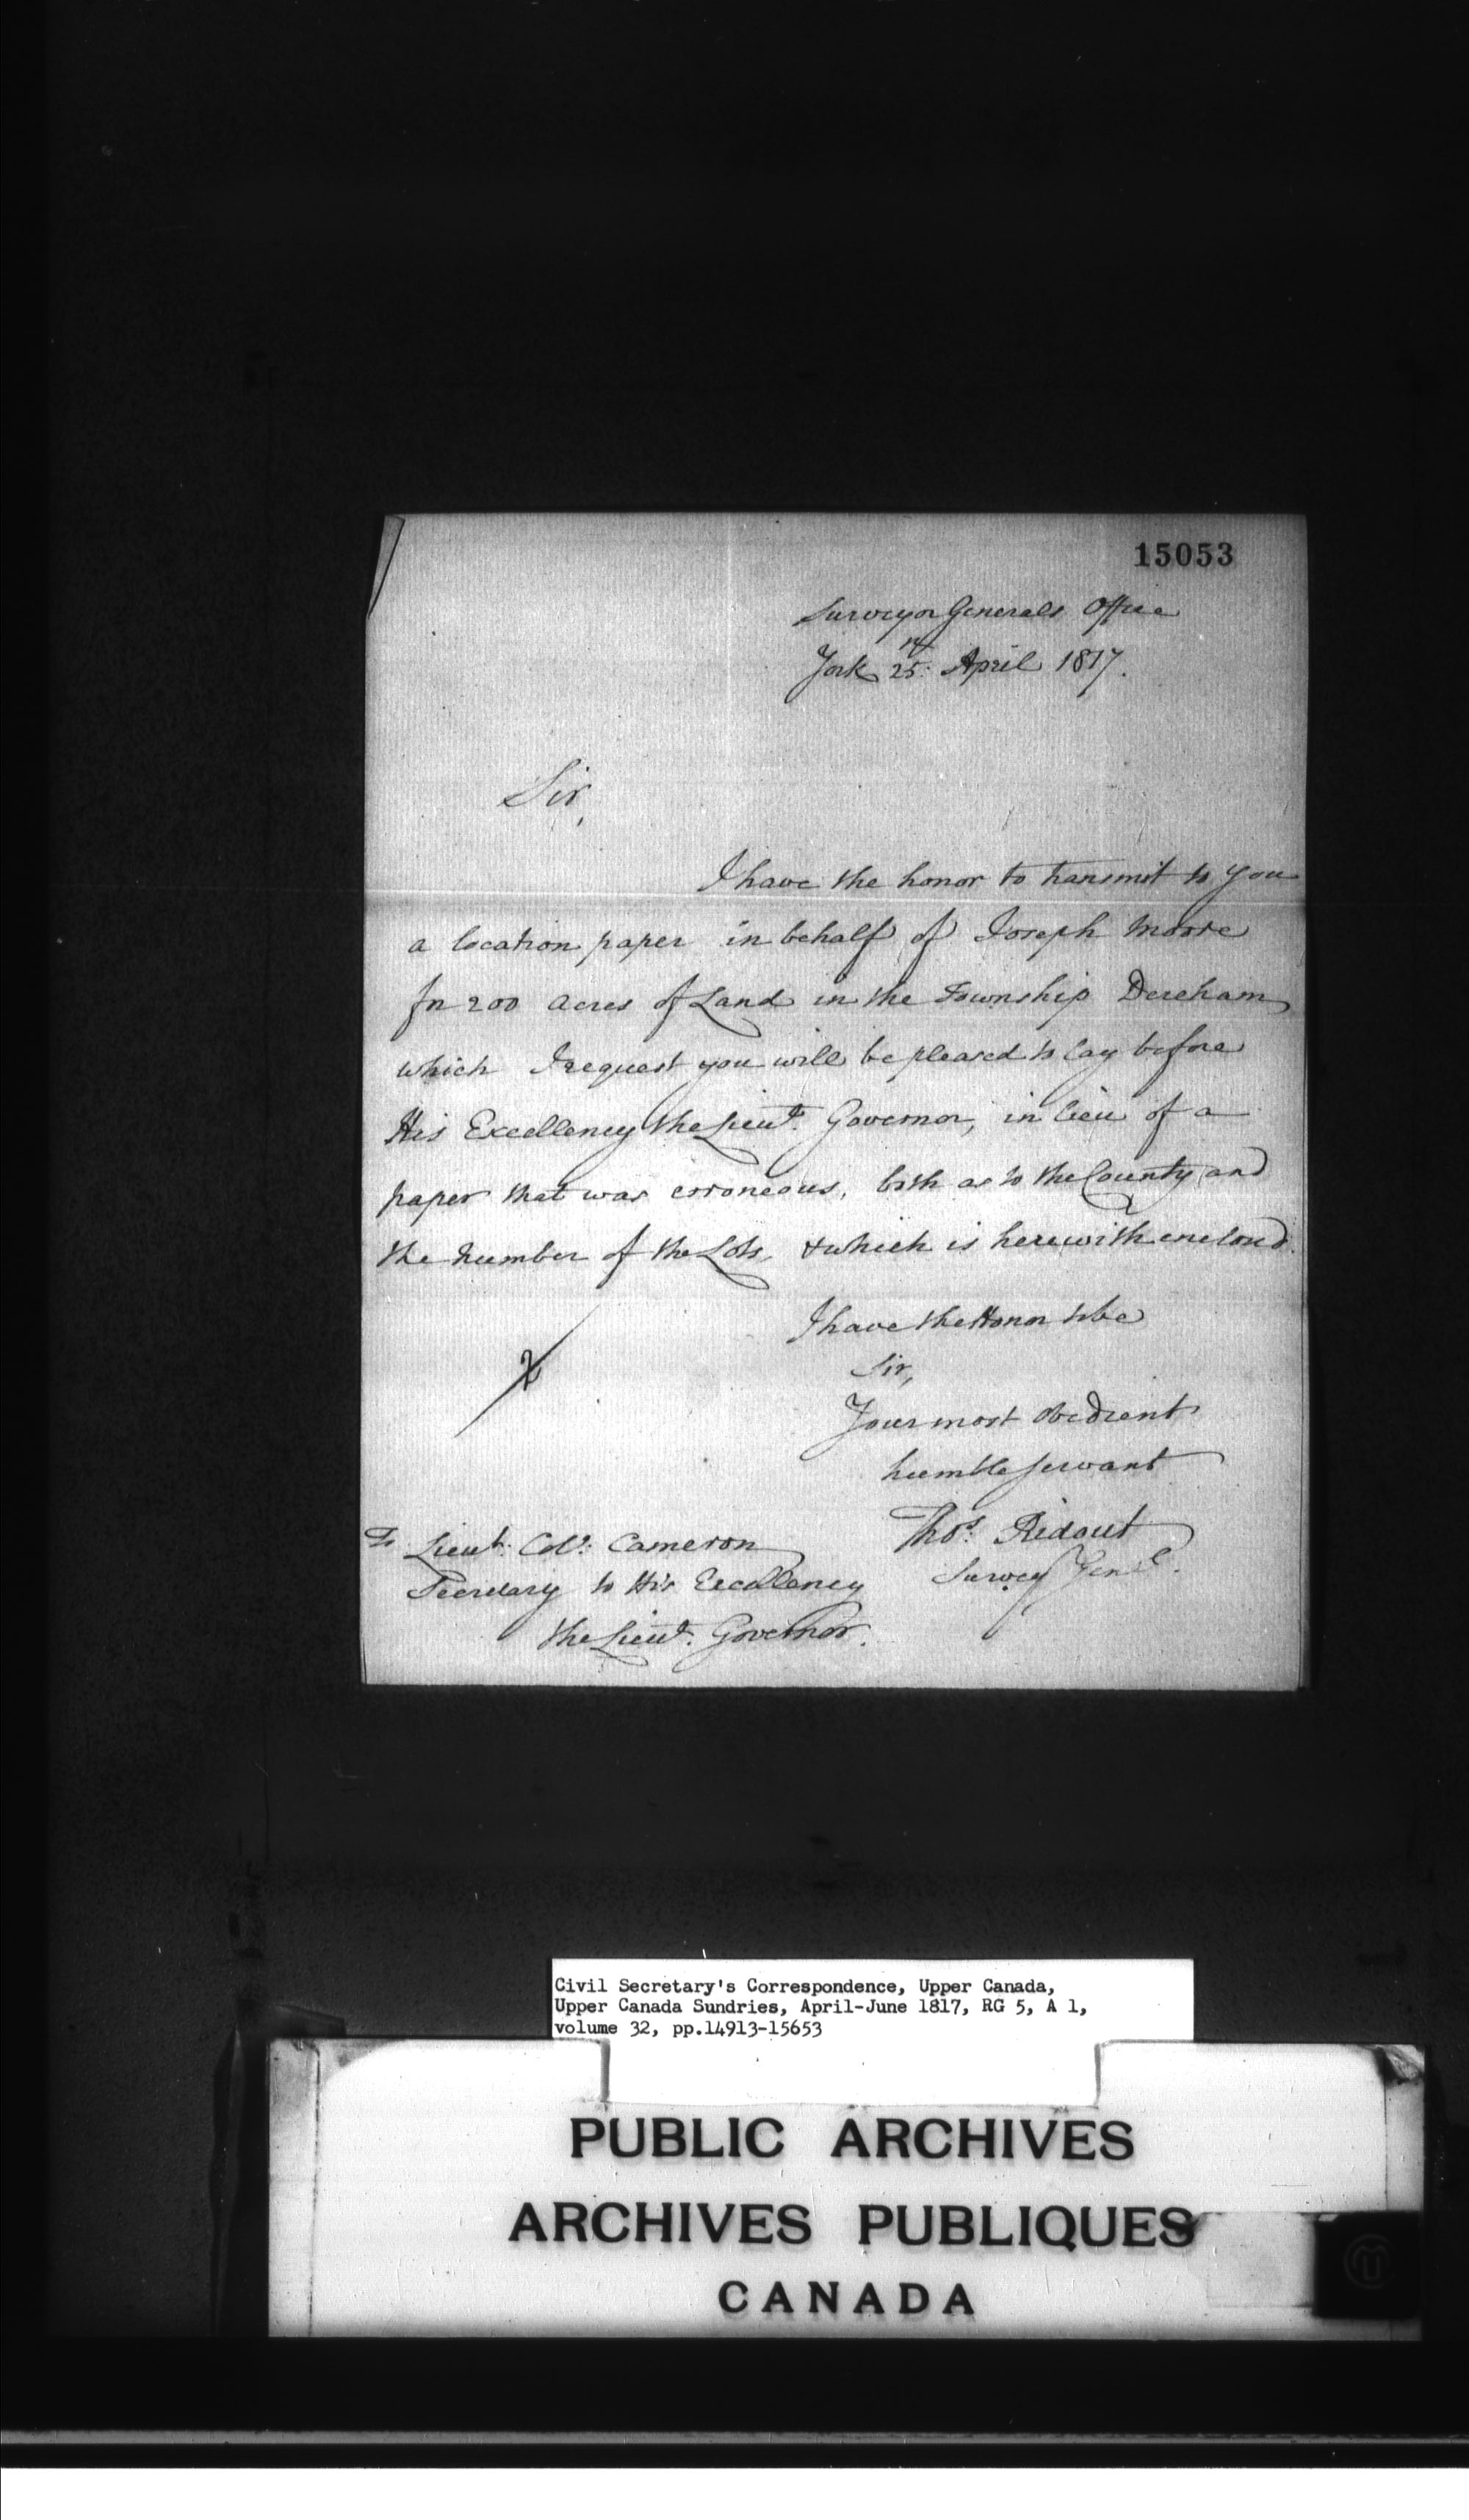 15053
Surveyor Generals Office
York 25th April 1817.
Sir,
I have the honor to transmit to you
a location paper in behalf of Joseph Moore
for 200 acres of Land in the Township Dereham
which I request you will be pleased to lay before
His Excellency the Lieut. Governor, in lieu of a
paper that was erroneous, both as to the County and
the number of the Lots, & which is herewith enclosed.
I have the Honor to be
Sir,
Your most obedient
humble servant
Thos. Ridout
Survey Genl.
To Lieut. Col. Cameron
Secretary to His Excellency
the Lieut. Governor.
Civil Secretary's Correspondence, Upper Canada,
Upper Canada Sundries, April-June 1817, RG 5, A 1,
volume 32, pp.14913-15653
PUBLIC ARCHIVES
ARCHIVES PUBLIQUES
CANADA